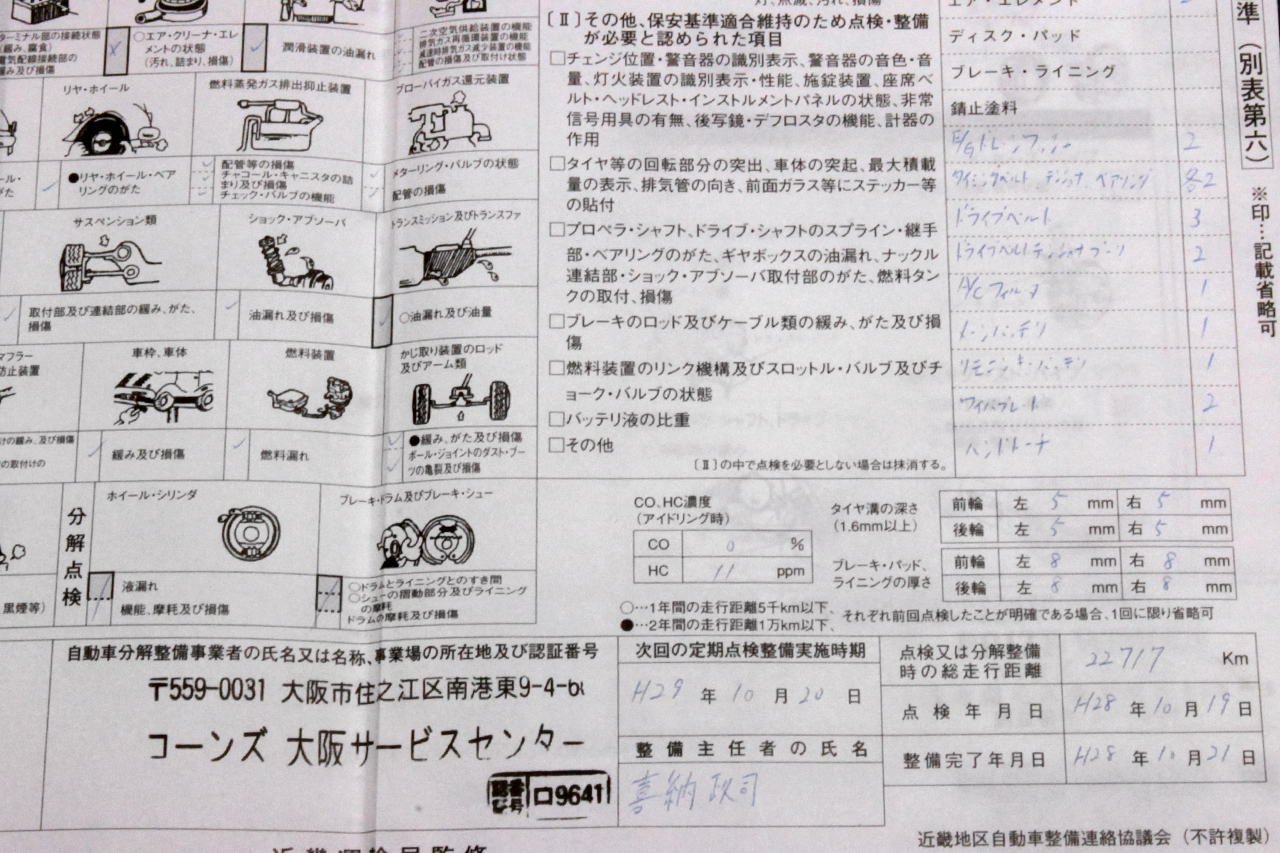 ターミナル部の接続状態
(緩み、腐食)
電気配線接続部の
緩み及び損傷
○エア・クリーナ・エレ
メントの状態
(汚れ、詰まり、損傷)
潤滑装置の油漏れ
二次空気供給装置の機能
排気ガス再循環装置の機能
減速時排気ガス減少装置の機能
配管の損傷及び取付け状態
リヤ・ホイール
燃料蒸発ガス排出抑止装置
ブローバイガス還元装置
●リヤ・ホイール・ベア
リングのがた
配管等の損傷
チャコール・キャニスタの詰
まり及び損傷
チェック・バルブの機能
メターリング・バルブの状態
配管の損傷
サスペンション類
ショック・アブソーバ
トランスミッション及びトランスファ
取付部及び連結部の緩み、がた、
損傷
油漏れ及び損傷
○油漏れ及び油量
マフラー
防止装置
車枠、車体
燃料装置
かじ取り装置のロッド
及びアーム類
けの緩み、及び損傷
の取付けの
緩み及び損傷
燃料漏れ
●緩み、がた及び損傷
ボール・ジョイントのダスト・ブー
ツの亀裂及び損傷
分解点検
ホイール・シリンダ
ブレーキ・ドラム及びブレーキ・シュー
黒煙等)
液漏れ
機能、摩耗及び損傷
○ドラムとライニングとのすき間
○シューの摺動部分及びライニング
の摩耗
ドラムの摩耗及び損傷
〔Ⅱ〕その他、保安基準適合維持のため点検・整備
が必要と認められた項目
□チェンジ位置・警音器の識別表示、警音器の音色・音
量、灯火装置の識別表示・性能、施錠装置、座席ベ
ルト・ヘッドレスト・インストルメントパネルの状態、非常
信号用具の有無、後写鏡・デフロスタの機能、計器の
作用
□タイヤ等の回転部分の突出、車体の突起、最大積載
量の表示、排気管の向き、前面ガラス等にステッカー等
の貼付
□プロペラ・シャフト、ドライブ・シャフトのスプライン・継手
部・ベアリングのがた、ギヤボックスの油漏れ、ナックル
連結部・ショック・アブソーバ取付部のがた、燃料タン
クの取付、損傷
□ブレーキのロッド及びケーブル類の緩み、がた及び損
傷
□燃料装置のリンク機構及びスロットル・バルブ及びチ
ョーク・バルブの状態
□バッテリ液の比重
□その他
〔Ⅱ〕の中で点検を必要としない場合は抹消する。
エア・エレメント
ディスク・パッド
ブレーキ・ライニング
錆止塗料
2
タイミングベルト テンショナ ベアリング 各2
ドライブベルト 3
ドライブベルトテンショナプーリ 2
A/Cフィルタ 1
メーンバッテリ 1
リモコンキーバッテリ 1
ワイパブレード 2
1
準(別表第六)
※印…記載省略可
CO、HC濃度
(アイドリング時)
CO 0 %
HC 11 ppm
タイヤ溝の深さ
(1.6mm以上)
前輪 左 5 mm 右 5 mm
後輪 左 5 mm 右 5 mm
ブレーキ・パッド、
ライニングの厚さ
前輪 左 8 mm 右 8 mm
後輪 左 8 mm 右 8 mm
○…1年間の走行距離5千km以下、
●…2年間の走行距離1万km以下、
それぞれ前回点検したことが明確である場合、1回に限り省略可
自動車分解整備事業者の氏名又は名称、事業場の所在地及び認証番号
〒559-0031 大阪市住之江区南港東9-4-6
コーンズ 大阪サービスセンター
認番
証号 ロ9641
次回の定期点検整備実施時期
H29 年 10 月 20 日
整備主任者の氏名
喜納 政司
点検又は分解整備
時の総走行距離
22717 Km
点検年月日 H28 年 10 月 19 日
整備完了年月日 H28 年 10 月 21 日
近畿地区自動車整備連絡協議会(不許複製)
近畿運輸局監修